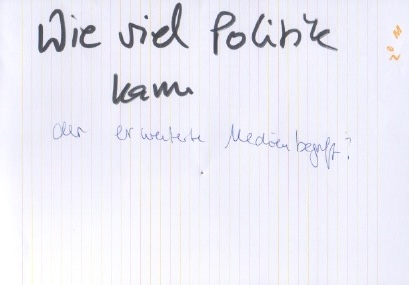 Wie viel Politik
kann
der erweiterte Medienbegriff?